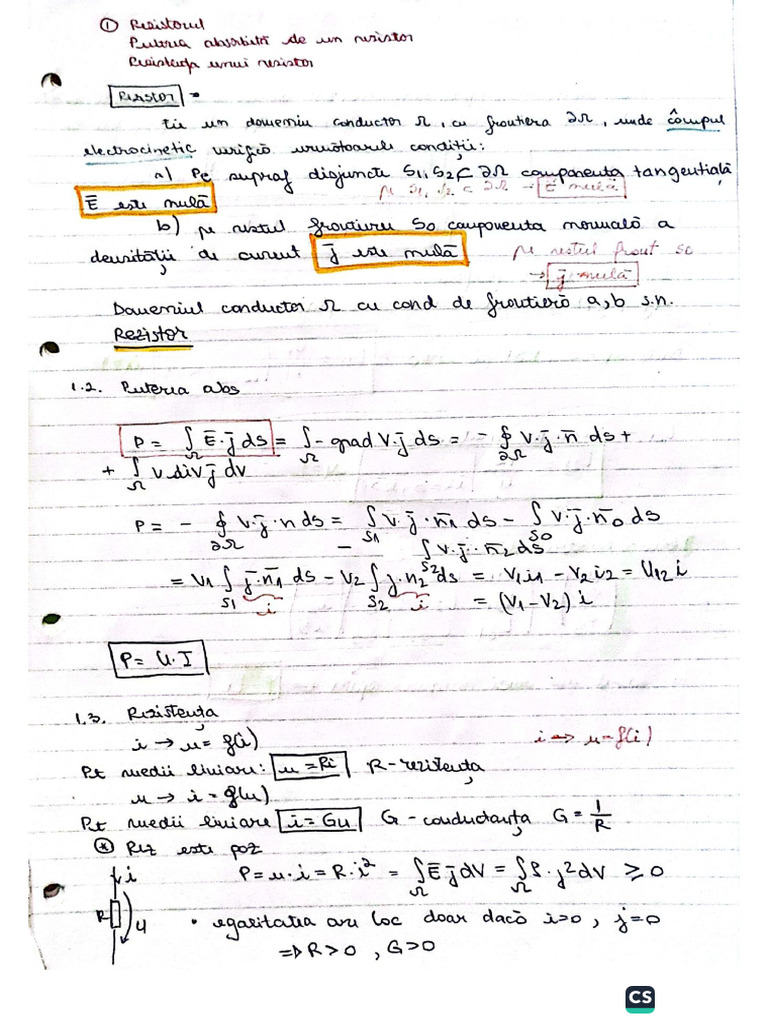 ① Rezistorul
Puterea absorbită de un rezistor
Rezistența unui rezistor
Rezistor =
Fie un domeniu conductor Ω, cu frontiera ∂Ω, unde câmpul
electrocinetic verifică următoarele condiții:
a) Pe supraf disjuncte S1, S2 ⊂ ∂Ω componenta tangențială
Ē este nulă
pe S1, S2 ⊂ ∂Ω → Ē nulă
b) pe restul frontierei S0 componenta normală a
densității de curent J̄ este nulă
pe restul front S0
→ J̄ nulă
Domeniul conductor Ω cu cond de frontieră a, b s.n.
Rezistor
1.2. Puterea abs
P = ∫Ω Ē·J̄ ds = ∫Ω - grad V·J̄ ds = - ∮∂Ω V·J̄·n̄ ds +
+ ∫Ω V div J̄ dv
P = - ∮∂Ω V·J̄·n ds = ∫S1 V·J̄·n̄1 ds - ∫S0 V·J̄·n̄0 ds
- ∫S2 V·J̄·n̄2 ds
= V1 ∫S1 J̄·n̄1 ds - V2 ∫S2 J·n̄2 ds = V1i1 - V2i2 = U12 i
i i = (V1 - V2) i
P = U·I
1.3. Rezistența
i → u = f(i)
i → u = f(i)
Pt medii liniare: u = Ri R - rezistența
u → i = g(u)
Pt medii liniare i = Gu G - conductanța G = 1/R
* Rez este poz
P = u·i = R·i² = ∫Ω Ē J̄ dV = ∫Ω ρ·J² dV ≥ 0
i
R
u
• egalitatea are loc doar dacă i=0, J=0
=> R > 0, G > 0
CS